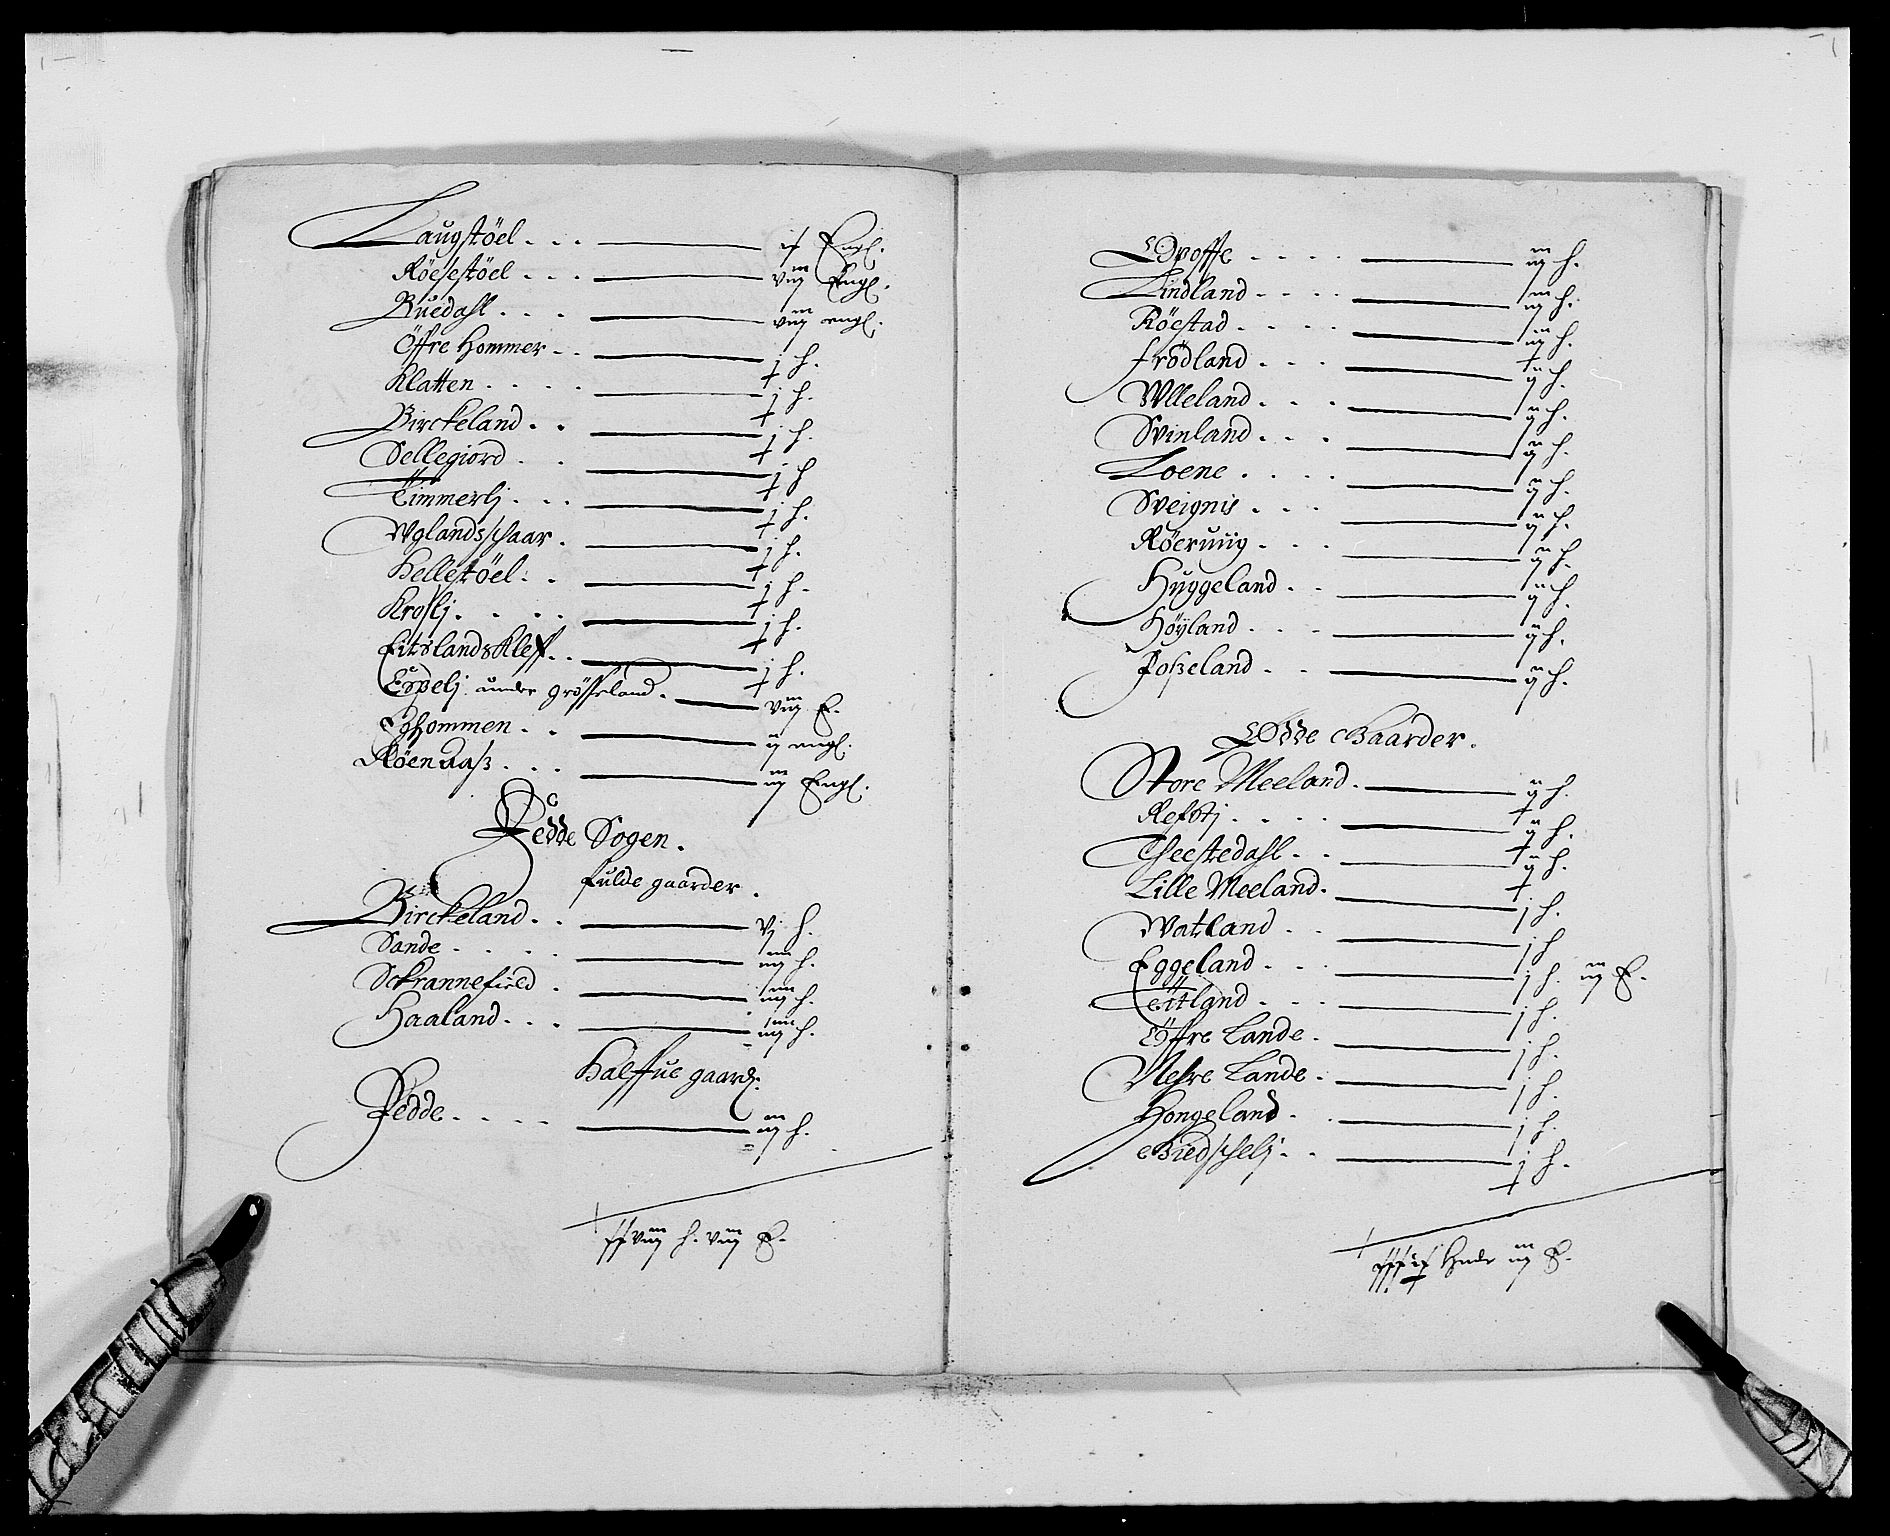 Laugstöel . . . if Engl.
Röesestöel . . . viij Engl.
Ruedahl . . . viij engl.
Öffre Hommer . . j h.
Klatten . . . . j h.
Birckeland . . j h.
Sellegiord . . j h
Timmerlj . . . j h.
Wglandsschaar . j h.
Helletöel . . j h.
Kroslj . . . . j h.
Eitzlandskleff . . j h.
Espelj under Gröffeland . viij E.
Eghommen . . ij engl.
Röenaas . . . iij Engl.
Fedde Sogen .
fulde gaarder .
Birckeland . . vj h.
Sande . . . . iiij h.
Sckrannefield . iiij h.
Haaland . . . iiij h.
Halffue gaard.
Fedde . . . . iij h.
viij h. viij E.
Opoffte . . . . iij h.
Lindland . . . . iij h.
Röestad . . . . iij h.
frödland . . . ij h.
Wlleland . . . ij h.
Svinland . . . ij h.
Loene . . . . ij h.
Sveignis . . . ij h.
Röeruiig . . . ij h.
Huggeland . . ij h.
Höyland . . . ij h.
Josseland . . ij h.
Ödde Gaarder .
Store Meeland . ij h.
Refstj . . . . ij h.
Theestedahl . . ij h.
Lille Meeland . j h.
Watland . . j h
Eggeland . . . j h. iij E.
Teitland . . . j h.
Öffre Lande . j h.
Nesre Lande . j h.
Hongeland . . j h.
Biedschelj . . j h.
Hude iij E.